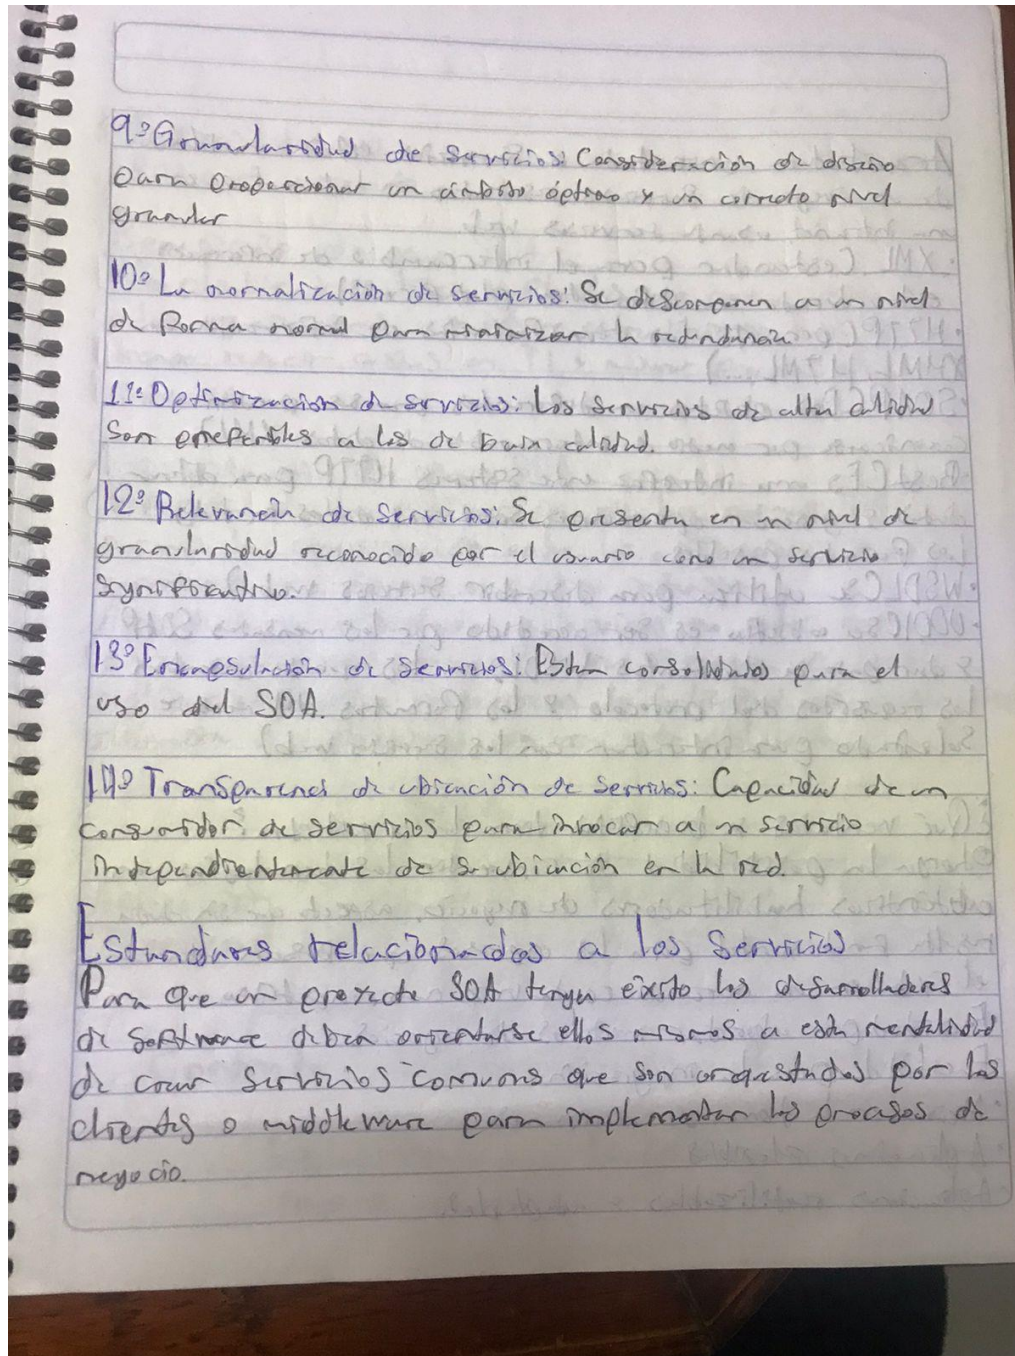 9º Granularidad de servicios: Consideración de diseño
para proporcionar un ámbito óptimo y un correcto nivel
granular
10º La normalización de servicios: Se descomponen a un nivel
de forma normal para minimizar la redundancia
11º Optimización de servicios: Los servicios de alta calidad
son preferibles a los de baja calidad.
12º Relevancia de servicios: Se presenta en un nivel de
granularidad reconocido por el usuario como un servicio
significativo.
13º Encapsulación de servicios: Estan consolidados para el
uso del SOA.
14º Transparencia de ubicación de servicios: Capacidad de un
consumidor de servicios para invocar a un servicio
independientemente de su ubicación en la red.
Estandares relacionados a los servicios
Para que un proyecto SOA tenga éxito los desarrolladores
de software deben orientarse ellos mismos a esta mentalidad
de crear servicios comunes que son orquestados por los
clientes o middleware para implementar los procesos de
negocio.